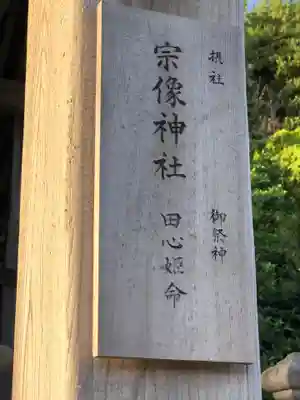 摂社
御祭神
宗像神社
田心姫命